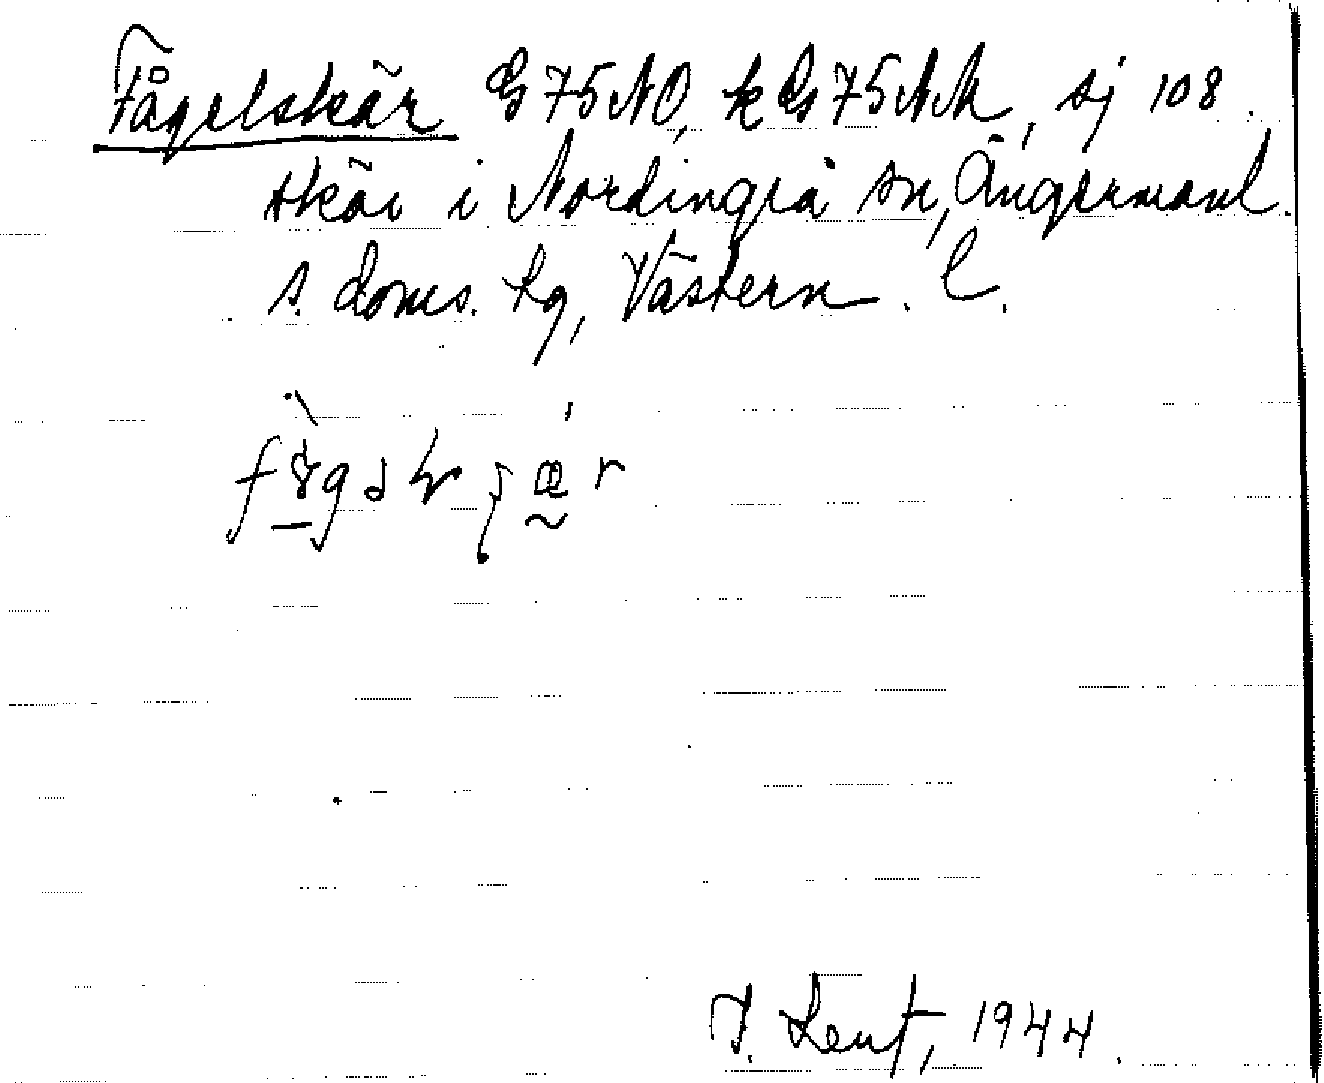 Fågelskär G 75 NO, k G 75 NM, sj 108.
skär i Nordingrå sn, Ångermanl.
s. doms. tg, Västern. l.
J. Lent, 1944.